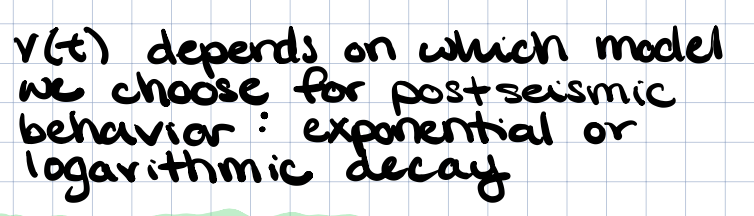 v(t) depends on which model
we choose for postseismic
behavior: exponential or
logarithmic decay